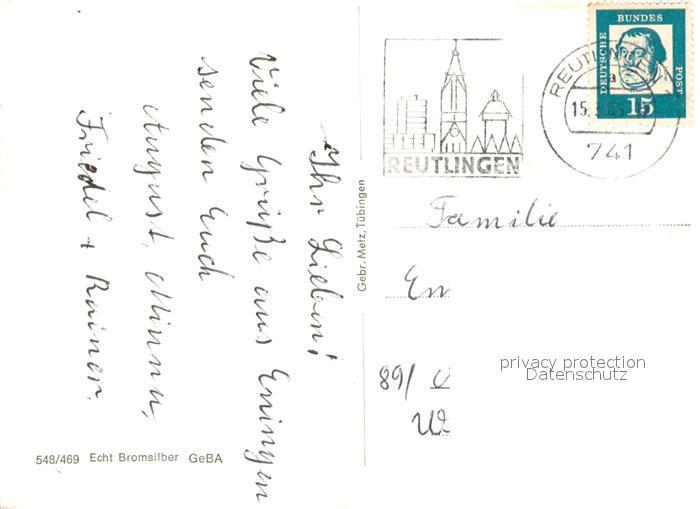 Ihr Lieben!
Viele Grüße aus Eningen
senden Euch
August, Minna,
Friedel + Rainer.
548/469 Echt Bromsilber GeBA
Gebr. Metz, Tübingen
REUTLINGEN
REUTLINGEN
a
15.
741
DEUTSCHE BUNDES POST
15
Familie
En
89/
privacy protection
Datenschutz